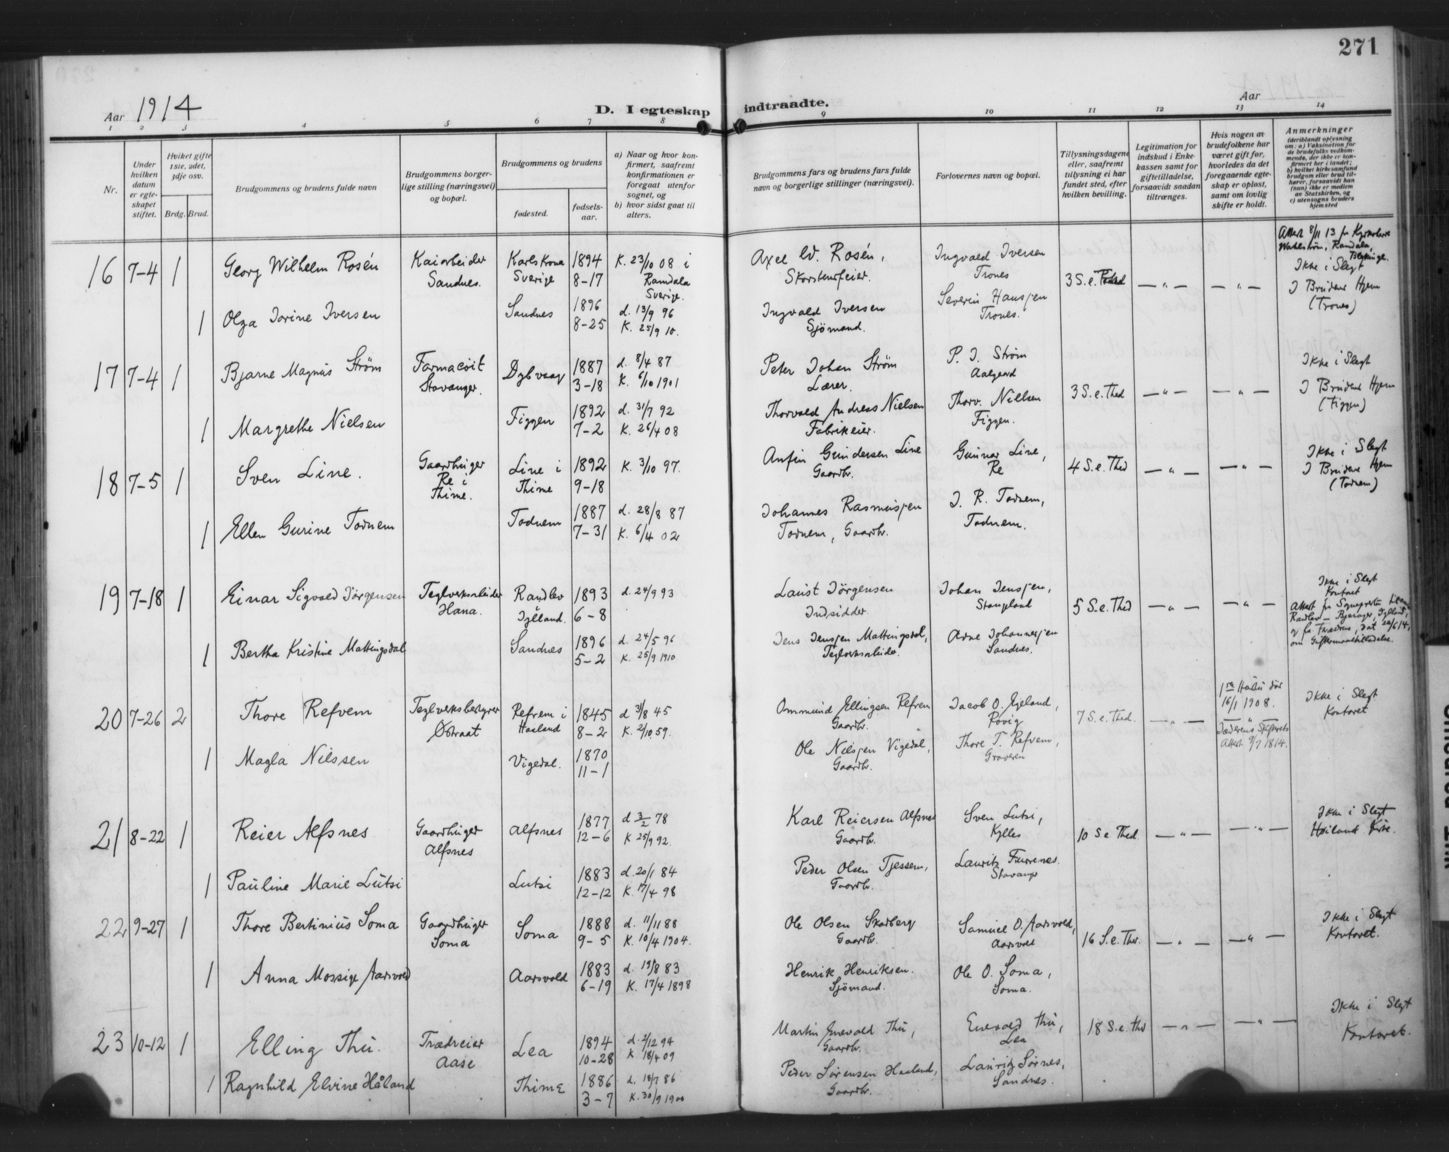 271
Aar 1914
D. I egteskap indtraadte.
Aar
1 2 3 4 5 6 7 8 9 10 11 12 13 14
Nr.
Under hvilken datum er egteskapet stiftet.
Hvilket gifte 1ste, 2det, 3dje osv.
Brdg. Brud.
Brudgommens og brudens fulde navn
Brudgommens borgerlige stilling (næringsvei) og bopæl.
Brudgommens og brudens
fødested.
fødselsaar.
a) Naar og hvor konfirmert, saafremt konfirmationen er foregaat utenfor sognet, og
b) hvor sidst gaat til alters.
Brudgommens fars og brudens fars fulde navn og borgerlige stillinger (næringsvei).
Forlovernes navn og bopæl.
Tillysningsdagene eller, saafremt tillysning ei har fundet sted, efter hvilken bevilling.
Legitimation for indskud i Enkekassen samt for giftetilladelse, forsaavidt saadan tiltrænges.
Hvis nogen av brudefolkene har været gift før, hvorledes da det foregaaende egteskap er opløst, samt om lovlig skifte er holdt.
Anmerkninger
16 7-4 1 Georg Wilhelm Rosén Kaiarbeider Sandnes. Karlskrona Sverige 1894 8-17 K. 23/10 08 i Ramdala Sverige. Axel Ed. Rosén, Skorstensfeier. Ingvald Iversen Trones 3 S.e. Ikke i Slegt I Brudens Hjem (Trones)
1 Olga Jorine Iversen Sandnes 1896 8-25 d. 13/9 96 K. 25/9 10. Ingvald Iversen Sjömand. Severin Hansen Trones.
17 7-4 1 Bjarne Magnus Strøm Farmaceüt Stavanger. Dybvaag 1887 3-18 d. 8/4 87 K. 6/10 1901 Peter Johan Strøm Lærer. P. J. Strøm Aalgaard 3 S. e. Thed Ikke i Slegt I Brudens Hjem (Figgen)
1 Margrethe Nielsen Figgen 1892 7-2 d. 31/7 92 K. 26/4 08 Thorvald Andreas Nielsen Fabrikeier. Thorv. Nielsen Figgen.
18 7-5 1 Sven Line. Gaardbruger Re i Thime. Line i Thime 1892 9-18 K. 3/10 97. Anfin Gundersen Line Gaardbr. Gunnar Line, Re 4 S.e. Thed Ikke i Slegt I Brudens Hjem (Todnem)
1 Ellen Gurine Todnem Todnem 1887 7-31 d. 28/8 87 K. 6/4 02 Johannes Rasmussen Todnem, Gaardbr. J. R. Todnem, Todnem.
19 7-18 1 Einar Sigvard Jörgensen Teglverksarbeider Hana. Randlev Jylland. 1893 6-8 d. 24/9 93 Laust Jörgensen Indsidder Johan Jensen, Stangeland 5 S.e. Thed Ikke i Slegt Kontoret
1 Bertha Kristine Mattingsdal Sandnes 1896 5-2 d. 24/5 96 K. 25/9 1910 Jens Jensen Mattingsdal, Teglverksarbeider. Arne Johannesen Sandnes.
20 7-26 2 Thore Refvem Teglverksbestyrer Østraat Refvem i Haaland 1845 8-2 d 3/8 45 K. 2/10 59. Ommund Ellingsen Refvem Gaardbr. Jacob O. Gjeland, Rovig 7 S.e. Thed. 1ste Hustru död 16/1 1908. Ikke i Slegt Kontoret
1 Magla Nilssen Vigedal. 1870 11-1 Ole Nilsen Vigedal, Gaardbr. Thore T. Refvem, Graveren
21 8-22 1 Reier Alfsnes Gaardbruger Alfsnes Alfsnes 1877 12-6 d 3/2 78 K 25/9 92. Karl Reiersen Alfsnes Gaardbr. Sven Lutsi, Kylles 10 S e Thed Ikke i Slegt Høiland Kirke.
1 Pauline Marie Lutsi Lutsi 1883 12-12 d. 20/1 84 K. 17/4 98 Peder Olsen Tjessem, Gaardbr. Lauritz Furrenes Stavanger
22 9-27 1 Thore Bertinius Soma Gaardbruger Soma Soma 1888 9-5 d. 11/11 88 K. 10/4 1904. Ole Olsen Skarberg Gaardbr. Samuel O. Aarsvold, Aarsvold 16 S.e. The. Ikke i Slegt Kontoret.
1 Anna Mossige Aarsvold Aarsvold 1883 6-19 d. 19/8 83 K. 17/4 1898 Henrik Henriksen. Sjömand. Ole O. Soma, Soma.
23 10-12 1 Elling Thu. Trædreier Aase Lea 1894 10-28 d. 2/12 94 K 18/4 09 Martin Enevald Thu, Gaardbr. Enevald Thu, Lea 18 S.e. Thd Ikke i Slegt Kontoret.
1 Ragnhild Elvine Håland Thime 1886 3-7 d. 18/7 86 K. 30/9 1900 Peder Sörensen Haaland, Gaardbr. Lauritz Sörnes, Sandnes.